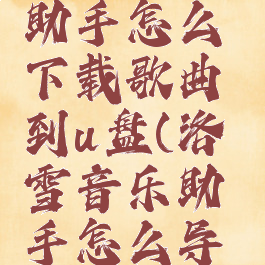 助手怎么
下载歌曲
到u盘(洛
雪音乐助
手怎么导